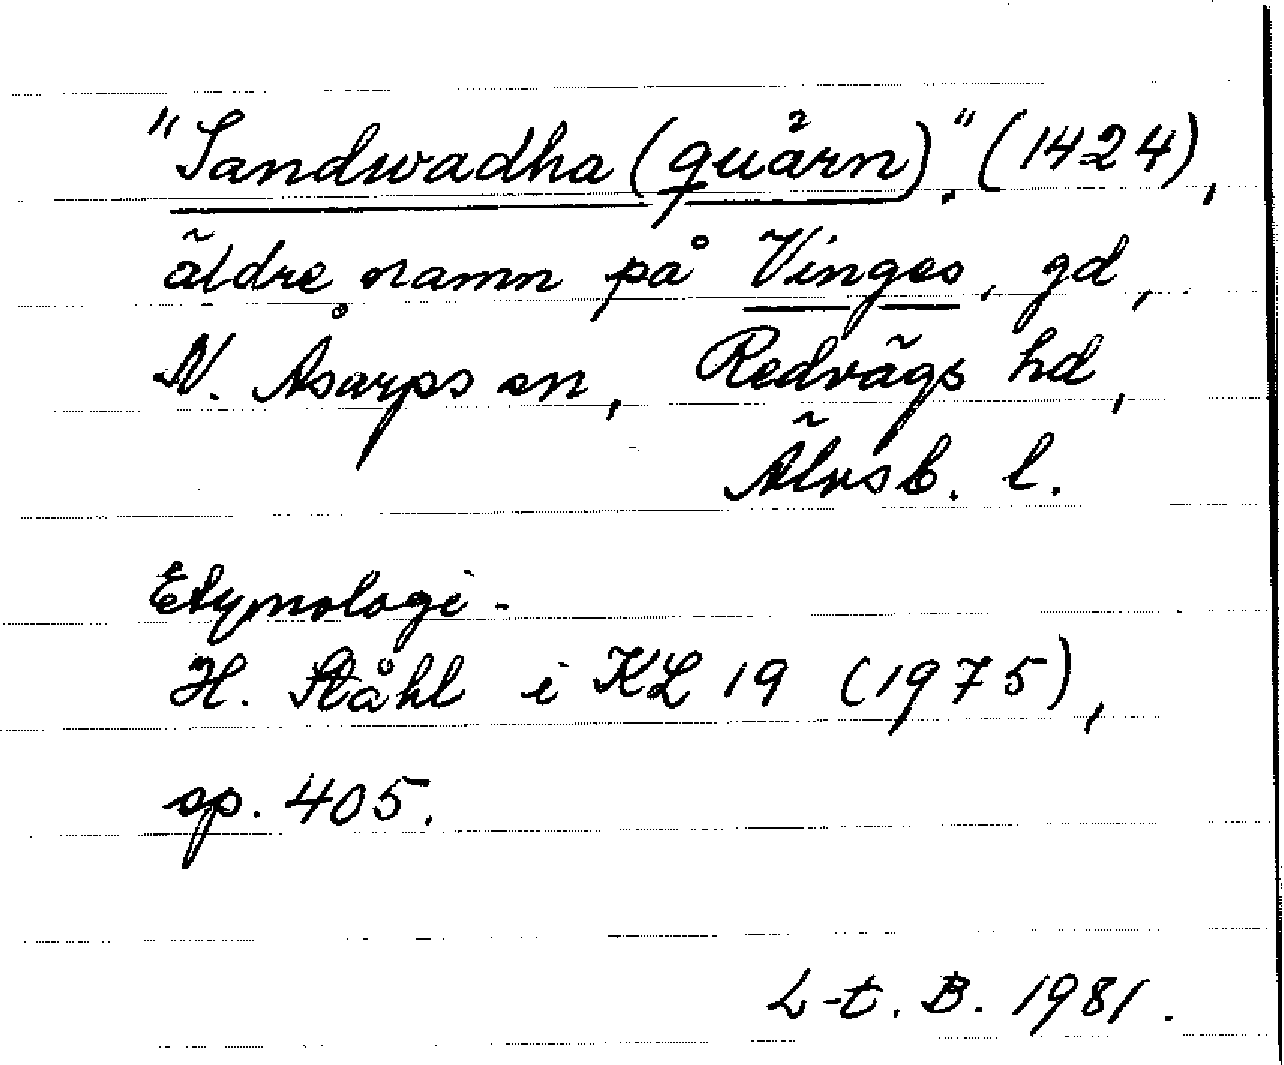 "Sandwadha (quärn)." (1424),
äldre namn på Vinges, gd,
N. Åsarps sn, Redvägs hd,
Älvsb. l.
Etymologi -
H. Ståhl i KL 19 (1975),
sp. 405.
L-t. B. 1981.